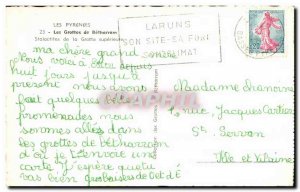 LES PYRENEES
23 - Les Grottes de Bétharram
Stalactites de la Grotte supérieure
LARUNS
SON SITE - SA FORÊT
CLIMAT
ma chère grand
vous voici à depuis
huit jours jusqu'à
présent nous avons
fait quelques belles
promenades nous
sommes allés dans
les grottes de bétharram
d'où je t'envoie une
carte. J'espère que tu
vas bien gros baisers de
Madame
rue Jacques Cartier
St Servan
Ille et Vilaine